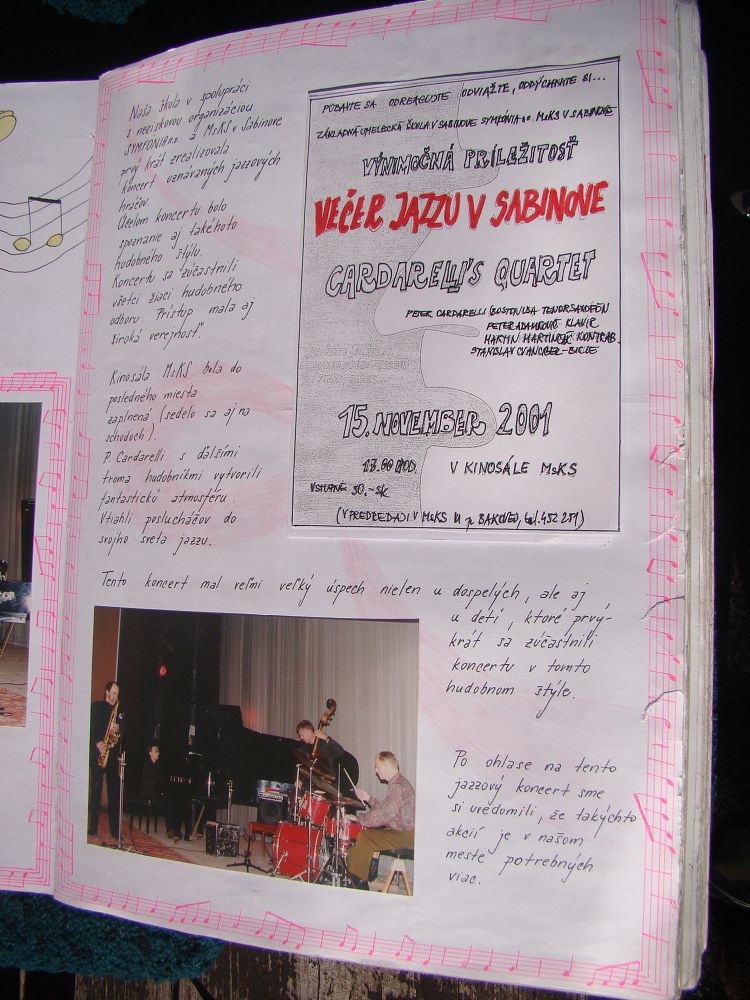 Naša škola v spolupráci
s neziskovou organizáciou
SYMFONIA n.o. a MsKS v Sabinove
prvý krát zrealizovala
koncert uznávaných jazzových
hráčov.
Účelom koncertu bolo
spoznanie aj takéhoto
hudobného štýlu.
Koncertu sa zúčastnili
všetci žiaci hudobného
odboru. Prístup mala aj
široká verejnosť.
Kinosála MsKS bola do
posledného miesta
zaplnená (sedelo sa aj na
schodoch).
P. Cardarelli s ďalšími
troma hudobníkmi vytvorili
fantastickú atmosféru.
Vtiahli poslucháčov do
svojho sveta jazzu.
PODÁVTE SA ODREAGUJTE ODVIAŽTE, ODDÝCHNITE SI...
ZÁKLADNÁ UMELECKÁ ŠKOLA V SABINOVE SYMFÓNIA n.o. MsKS V SABINOVE
VÝNIMOČNÁ PRÍLEŽITOSŤ
VEČER JAZZU V SABINOVE
CARDARELLI'S QUARTET
PETER CARDARELLI (BOSTON) USA TENORSAXOFÓN
PETER ADAMKOVIČ KLAVÍR
MARTIN MARINČÁK KONTRAB.
STANISLAV CVANCIGER - BICIE
15. NOVEMBER 2001
V KINOSÁLE MsKS
VSTUPNÉ 50.- SK
(V PREDPREDAJI V MsKS U p. BAKOVEJ, tel. 452 251)
Tento koncert mal veľmi veľký úspech nielen u dospelých, ale aj
u detí, ktoré prvý-
krát sa zúčastnili
koncertu v tomto
hudobnom štýle.
Po ohlase na tento
jazzový koncert sme
si uvedomili, že takýchto
akcií je v našom
meste potrebných
viac.